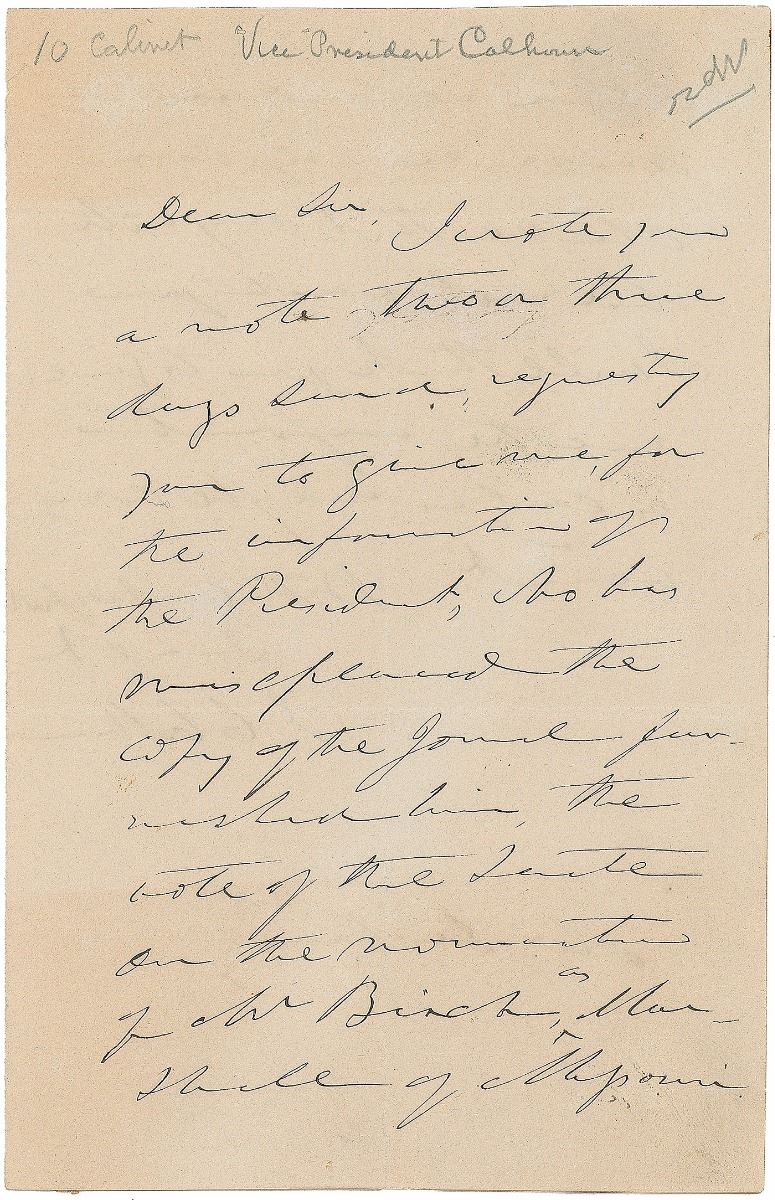 10 Cabinet Vice President Calhoun
Dear Sir, I wrote you
a note two or three
days since, requesting
you to give me, for
the information of
the President, who has
misplaced the
copy of the Journal fur-
nished him, the
vote of the Senate
on the nomination
of Mr Birch, as Mar-
shall of Missouri